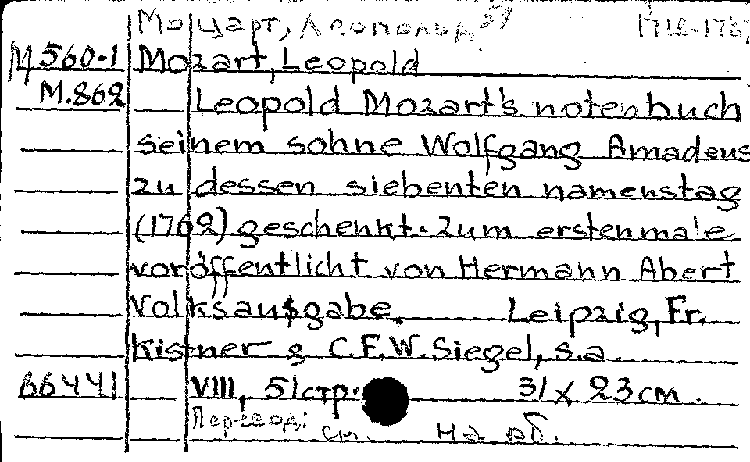 Моцарт, Леопольд
M 560-1 Mozart, Leopold
M.862 Leopold Mozart's notenbuch
seinem sohne Wolfgang Amadeus
zu dessen siebenten namenstag
(1762) geschenkt. Zum erstenmale
voröffentlicht von Hermann Abert
Volksausgabe. Leipzig, Fr.
Kistner & C.F.W. Siegel, s.a.
66441 VIII, 51 стр. 31 x 23 см.
Перевод: см. На об.